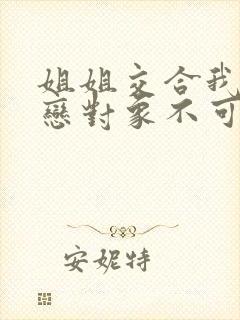 姐姐交合我
戀對象不可
安妮特